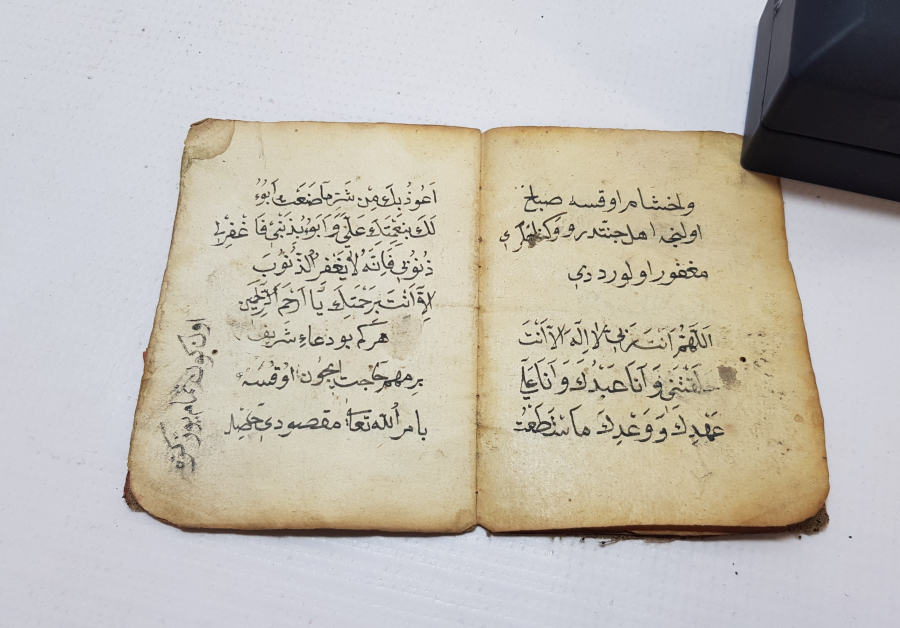 واخشام اوقسه صباح
اولنجه اهل جنتدر و
مغفور اولور ددي
اَللّٰهُمَّ اَنْتَ رَبِّي لَا اِلٰهَ اِلَّا اَنْتَ
خَلَقْتَنِي وَاَنَا عَبْدُكَ وَاَنَا عَلَى
عَهْدِكَ وَوَعْدِكَ مَا اسْتَطَعْتُ
اَعُوذُ بِكَ مِنْ شَرِّ مَا صَنَعْتُ اَبُوءُ
لَكَ بِنِعْمَتِكَ عَلَيَّ وَاَبُوءُ بِذَنْبِي فَاغْفِرْ لِي
ذُنُوبِي فَاِنَّهُ لَا يَغْفِرُ الذُّنُوبَ
اِلَّا اَنْتَ بِرَحْمَتِكَ يَا اَرْحَمَ الرَّاحِمِينَ
هركم بو دعاء شريف
بر مهم حاجت ايچون اوقسه
بامر الله تعا مقصودي
اون كون تمام يوز كره